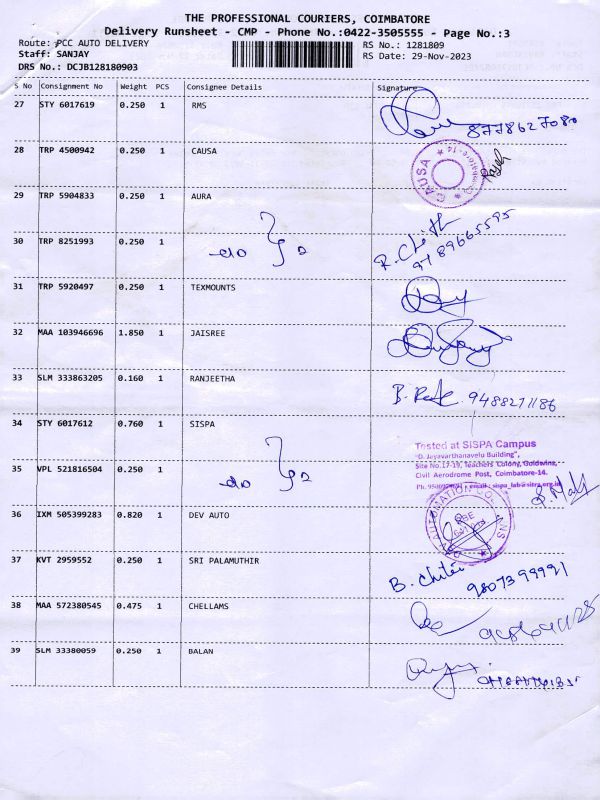 THE PROFESSIONAL COURIERS, COIMBATORE
Delivery Runsheet - CMP - Phone No.:0422-3505555 - Page No.:3
Route: PCC AUTO DELIVERY RS No.: 1281809
Staff: SANJAY RS Date: 29-Nov-2023
DRS No.: DCJB128180903
S No Consignment No Weight PCS Consignee Details Signature
27 STY 6017619 0.250 1 RMS 8778627080
28 TRP 4500942 0.250 1 CAUSA CAUSA
29 TRP 5904833 0.250 1 AURA
30 TRP 8251993 0.250 1 do 2 9789665595
31 TRP 5920497 0.250 1 TEXMOUNTS
32 MAA 103946696 1.850 1 JAISREE
33 SLM 333863205 0.160 1 RANJEETHA B. 9488271186
34 STY 6017612 0.760 1 SISPA
Tested at SISPA Campus
"D. Jayavarthanavelu Building",
Site No.17-19, Teachers Colony, Goldwins,
Civil Aerodrome Post, Coimbatore-14.
35 VPL 521816504 0.250 1 do 2
36 IXM 505399283 0.820 1 DEV AUTO AUTOMATION
37 KVT 2959552 0.250 1 SRI PALAMUTHIR B. 9807399991
38 MAA 572380545 0.475 1 CHELLAMS
39 SLM 33380059 0.250 1 BALAN